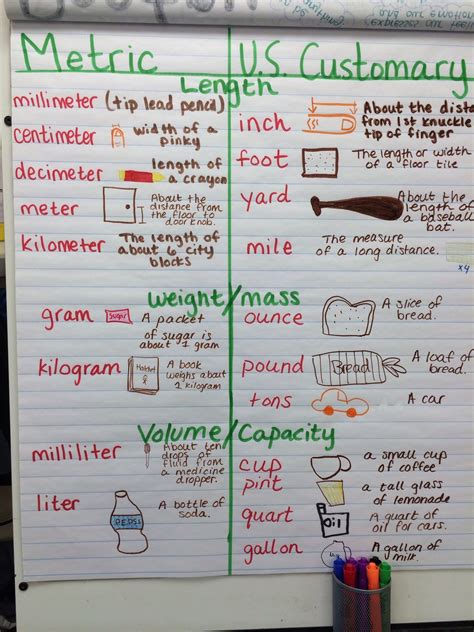 Metric
U.S. Customary
Length
millimeter (tip lead pencil)
centimeter
width of a
pinky
decimeter
length of
a crayon
meter
About the
distance
from the
floor to
doorknob.
kilometer
The length of
about 6 city
blocks
inch
About the dista
from 1st knuckle
tip of finger
foot
The length or width
of a floor tile
yard
About the
length of
a baseball
bat.
mile
The measure
of a long distance.
x4
weight/mass
gram
sugar
A packet
of sugar is
about 1 gram
kilogram
A book
weighs about
1 kilogram
ounce
A slice of
bread.
pound
Bread
A loaf of
bread.
tons
A car
Volume/Capacity
milliliter
About ten
drops of
fluid from
a medicine
dropper.
liter
PEPSI
A bottle of
soda.
cup
a small cup
of coffee
pint
a tall glass
of lemonade
quart
Oil
A quart of
oil for cars.
gallon
A gallon of
milk.